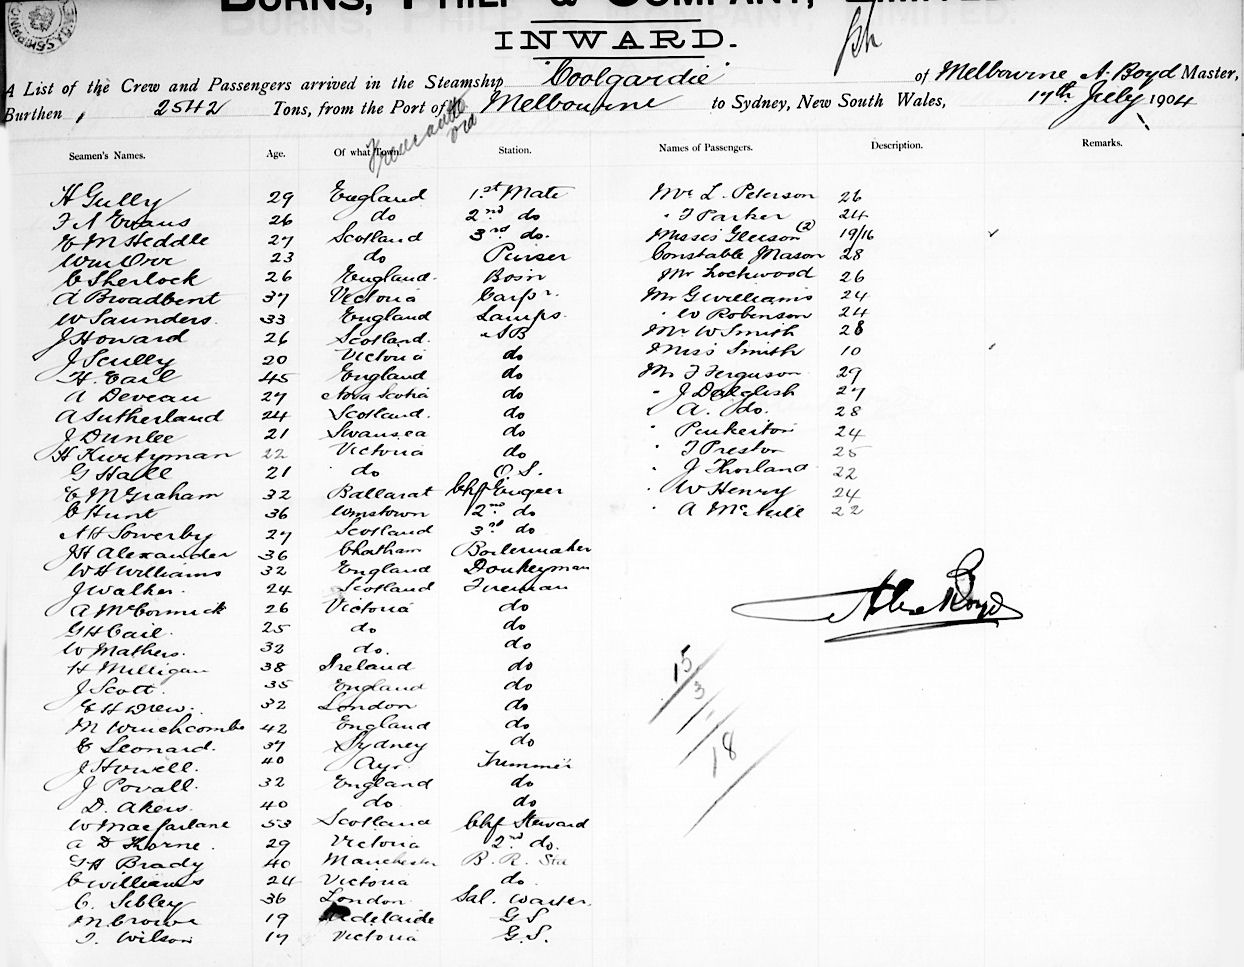 BURNS, PHILP & COMPANY, LIMITED.
INWARD.
A List of the Crew and Passengers arrived in the Steamship "Coolgardie" of Melbourne A. Boyd Master,
Burthen, 2542 Tons, from the Port of Melbourne to Sydney, New South Wales, 17th July 1904
Fremantle via
Seamen's Names. Age. Of what Town. Station. Names of Passengers. Description. Remarks.
H Gully 29 England 1st Mate Mr L. Peterson 26
F A Evans 26 do 2nd do " F Parker 24
E M Heddle 27 Scotland 3rd do. Misses Gleeson (2) 19/16
Wm Orr 23 do Purser Constable J Mason 28
C Sherlock 26 England. Bosn Mr Lockwood 26
A Broadbent 37 Victoria Carpr. Mr G Williams 24
W Saunders. 33 England Lamps. " W Robinson 24
J Howard 26 Scotland. AB Mr W Smith 28
J Scully 20 Victoria do Miss Smith 10
H. Cail 45 England do Mr F Ferguson 29
A Deveau 27 Nova Scotia do " J Dalglish 27
A Sutherland 24 Scotland. do " A. do. 28
J Dunlee 21 Swansea do " Pinkerton 24
H Kurtyman 22 Victoria do " T Preston 25
G Hall 21 do O.S. " J Thorland 22
E McGraham 32 Ballarat Chf Engeer " W Henry 24
C Hunt 36 Wmstown 2nd do " A McNeill 22
A H Sowerby 27 Scotland 3rd do
J H Alexander 36 Chatham Boilermaker
W H Williams 32 England Donkeyman
J Walker. 24 Scotland Fireman
A McCormick 26 Victoria do
G H Cail. 25 do do
W Mathers. 32 do. do
H Milligan 38 Ireland do
J Scott. 35 England do
E H Drew. 32 London do
M Winchcombe 42 England do
E Leonard. 37 Sydney do
J Howell. 40 Ayr. Trimmer
J Povall. 32 England do
D. Akers. 40 do do
W Macfarlane 53 Scotland Chf Steward
A D Thorne. 29 Victoria 2nd do.
G H Brady 40 Manchester B. R. Std
C Williams 24 Victoria do
C. Sibley 36 London Sal. Waiter.
M Crowe 19 Adelaide G S
T. Wilson 17 Victoria G.S.
Alex Boyd
15/3/
18